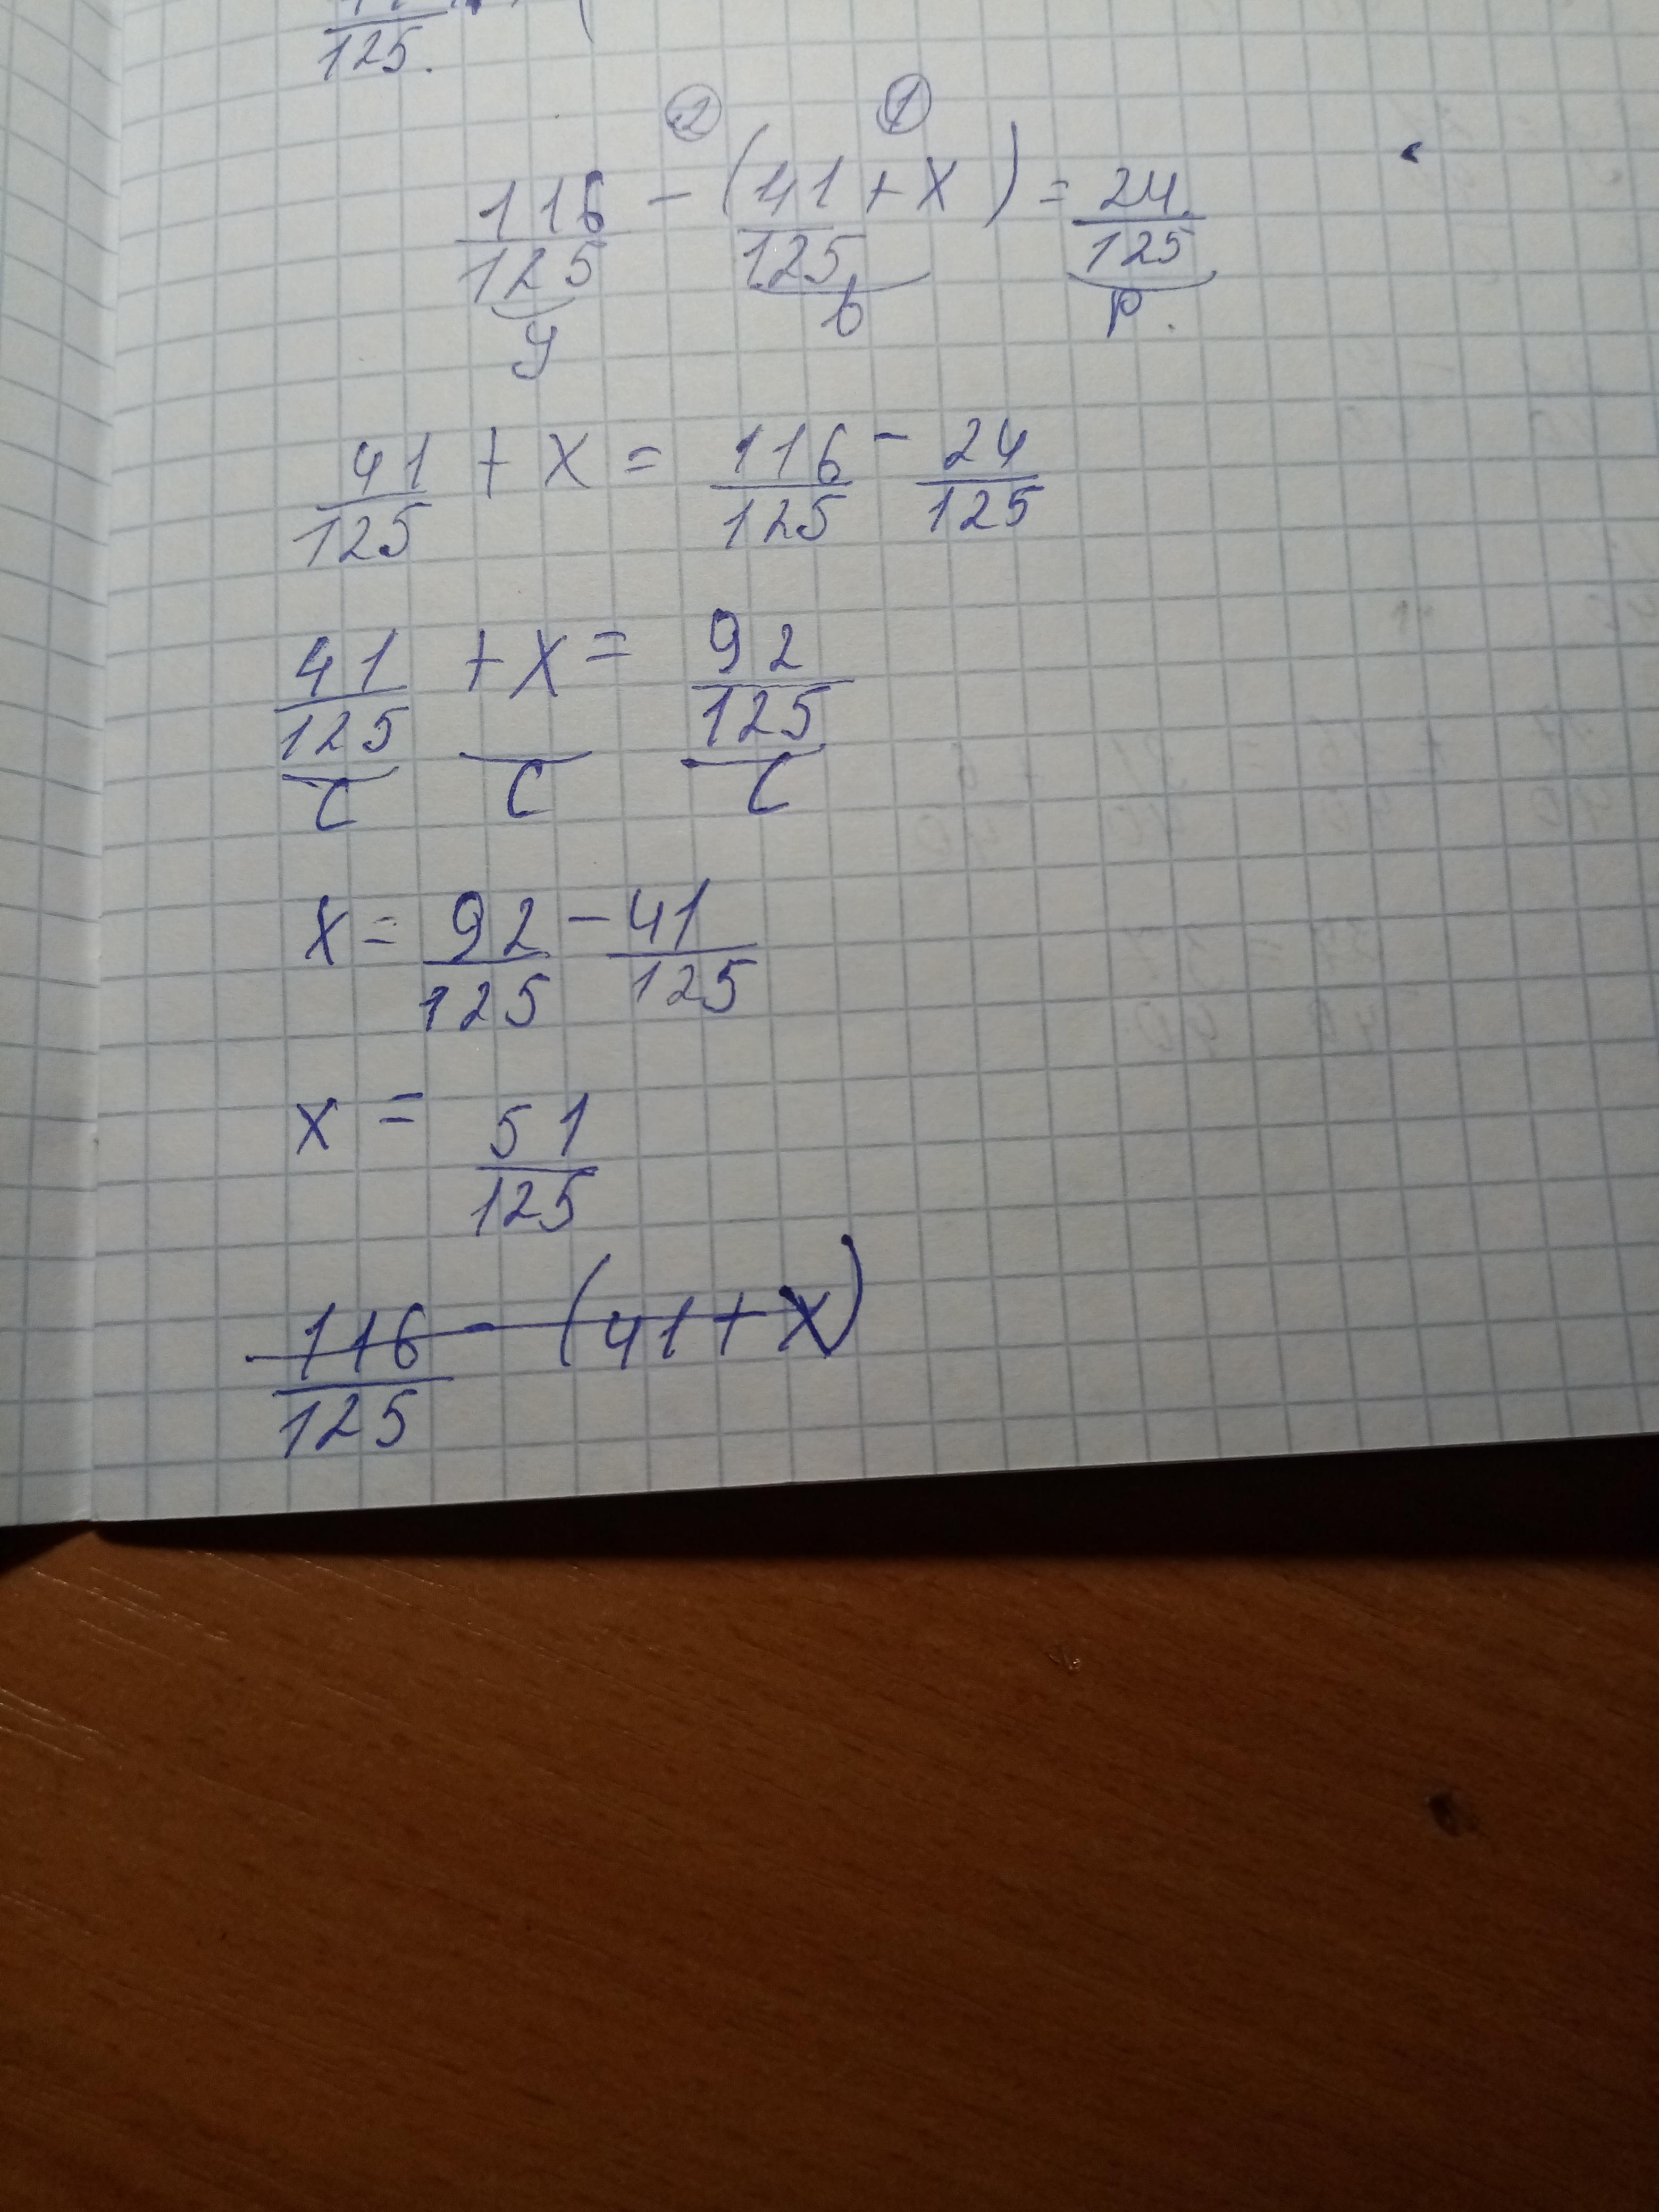 125.
② ①
116/125 - (41/125 + x) = 24/125
у в р.
41/125 + x = 116/125 - 24/125
41/125 + x = 92/125
с с с
x = 92/125 - 41/125
x = 51/125
116/125 - (41 + x)